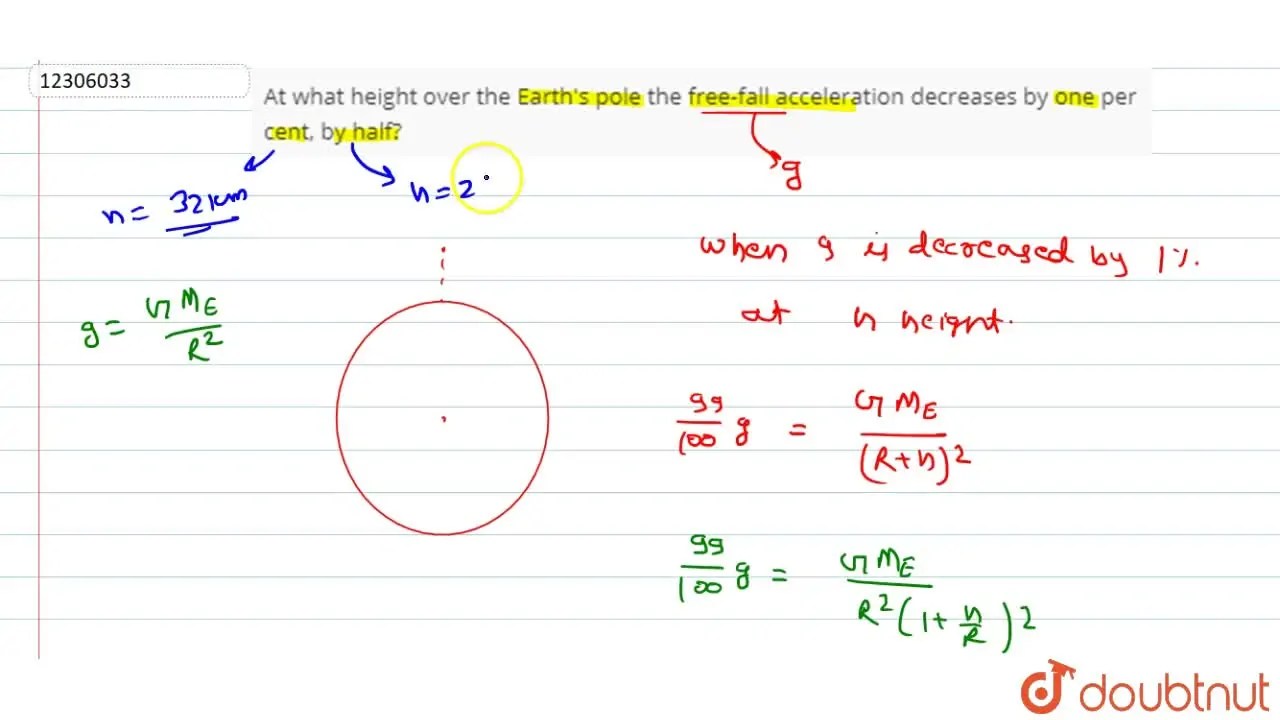 12306033
At what height over the Earth's pole the free-fall acceleration decreases by one per
cent, by half?
h = 32 km
h = 2
g
when g is decreased by 1%.
at h height.
g = G M_E / R^2
99/100 g = G M_E / (R+h)^2
99/100 g = G M_E / R^2 (1 + h/R)^2
doubtnut